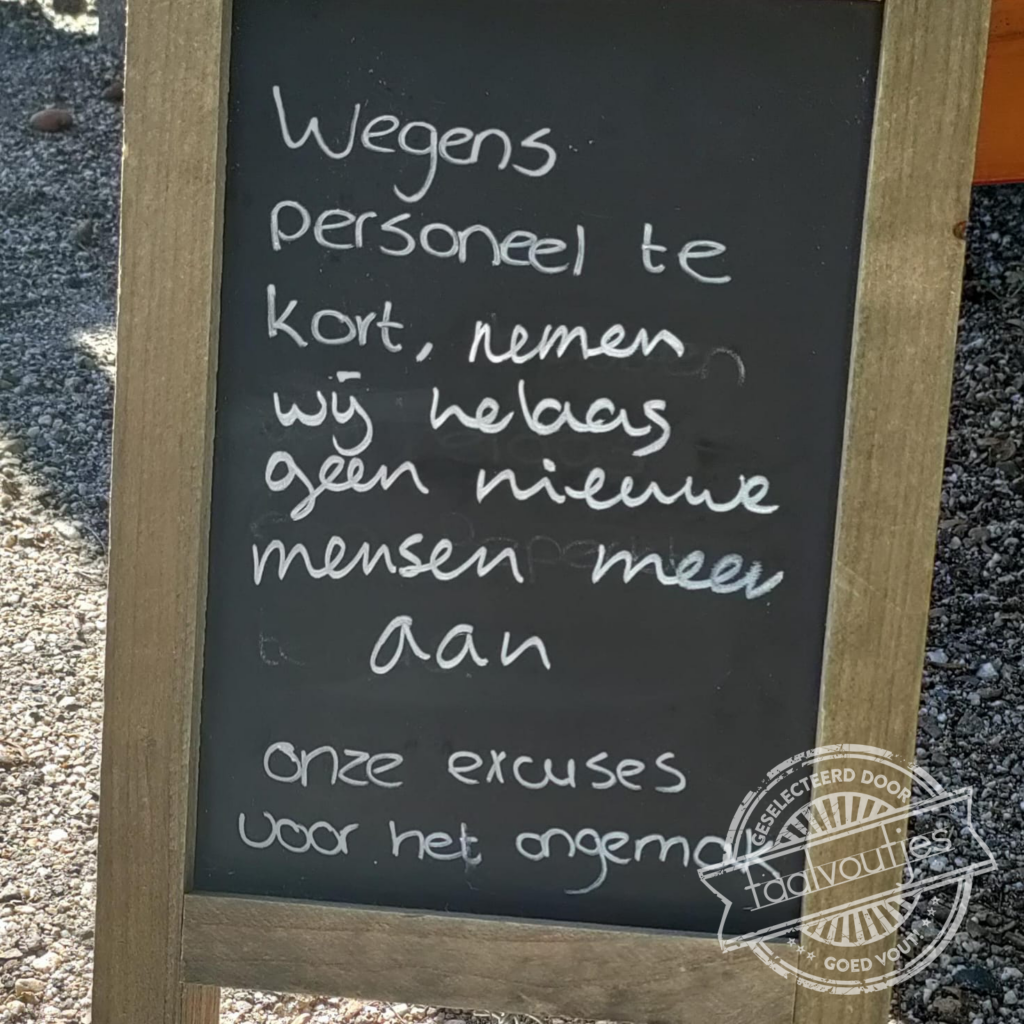 Wegens
personeel te
kort, nemen
wij helaas
geen nieuwe
mensen meer
aan
onze excuses
voor het ongemak
GESELECTEERD DOOR
taalvoutjes
GOED VOUT